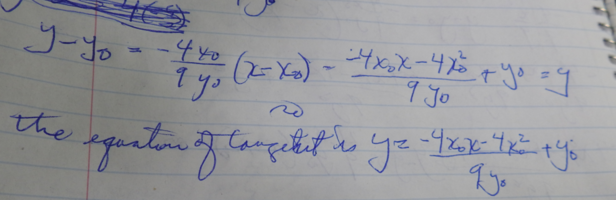 y-y₀ = -4x₀/9y₀ (x-x₀) - -4x₀x-4x₀²/9y₀ + y₀ = y
so
the equation of tangent is y = -4x₀x-4x₀²/9y₀ + y₀